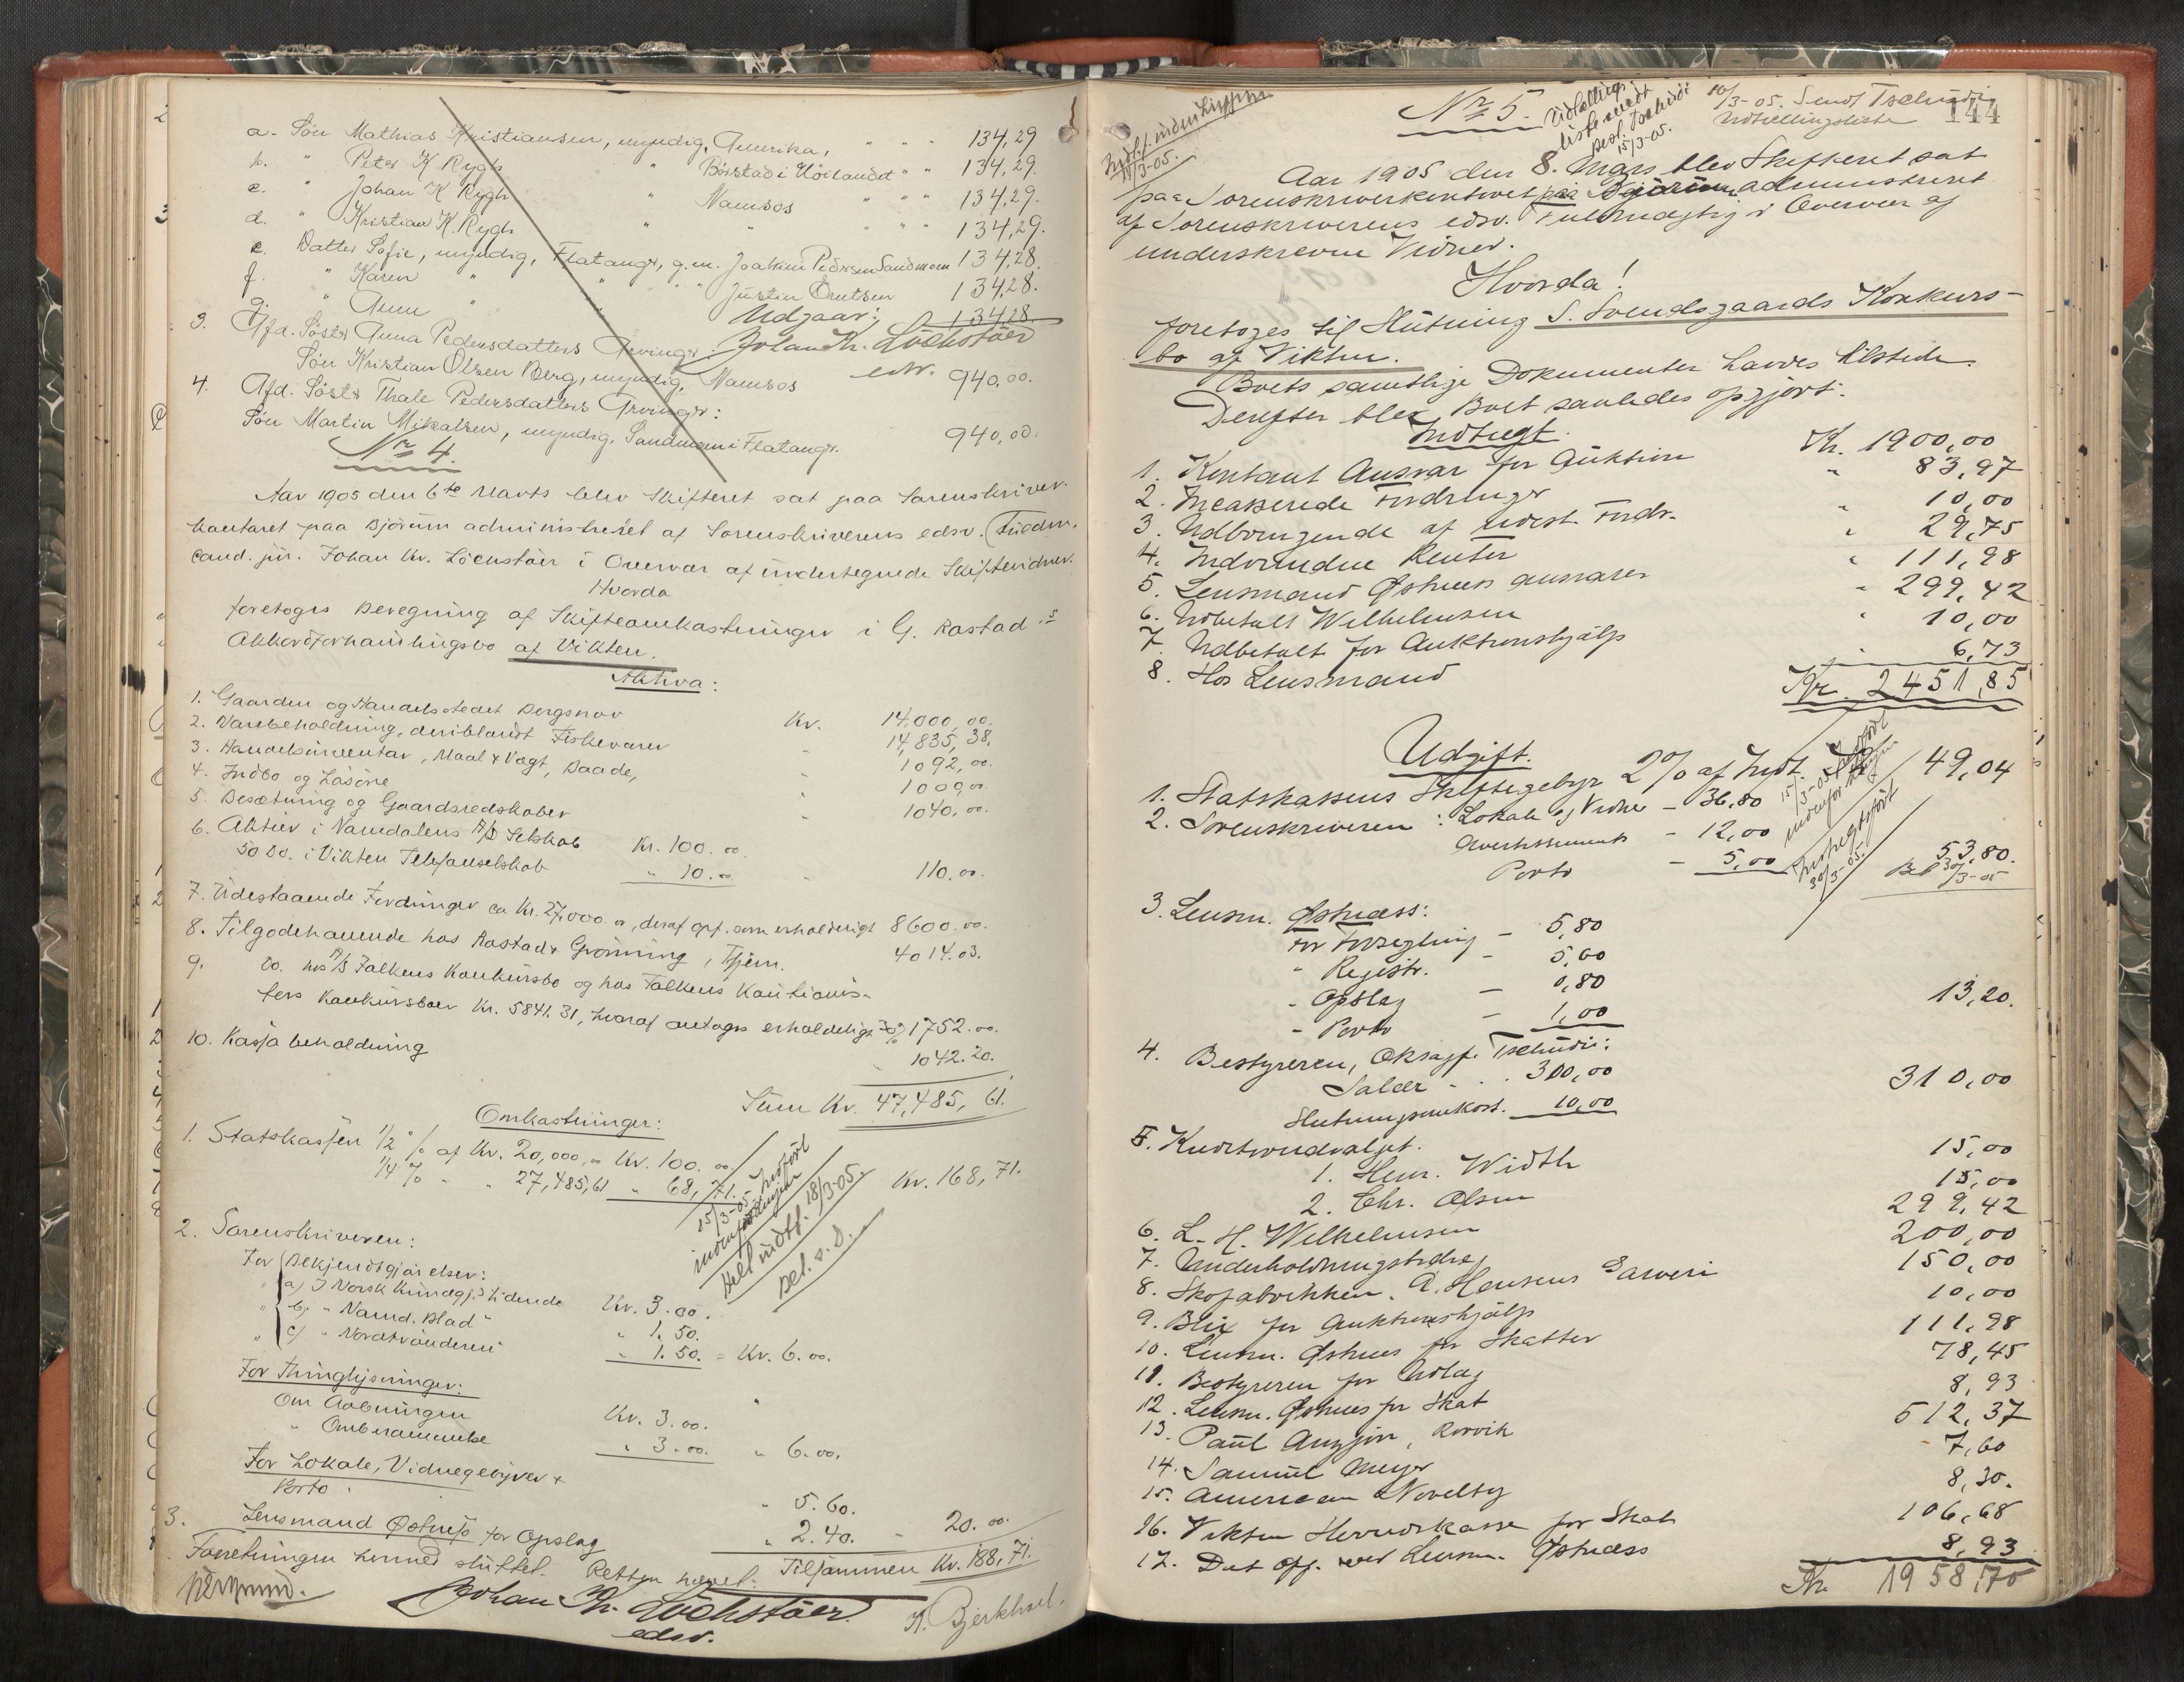 a. Søn Mathias Kristiansen, myndig, Amerika, " " " 134,29
b. " Peter K Rygh " Børstad i Höilandet " " 134,29.
c. " Johan K Rygh " Namsos " " " 134,29.
d. " Kristian K. Rygh " " " " " 134,29.
e. Datter Sofie, myndig, Flatanger, g.m. Joakim Pedersen Sandmoen 134,28.
f. " Karen " " " " Justin Knutsen 134,28.
g. " Anna " Udgaar: 134,28
3. Afd. Søster Anna Pedersdatters Arvinger: Johan Kr. Löchstöer
edsv.
Søn Kristian Olsen Berg, myndig, Namsos 940,00.
4. Afd. Søster Thale Pedersdatters Arvinger:
Søn Martin Mikalsen, myndig, Sandmoen i Flatanger. 940,00.
No 4.
Aar 1905 den 6te Marts blev Skifteret sat paa Sorenskriver-
kontoret paa Bjørum administreret af Sorenskriverens edsv. Fuldm.
cand. jur. Johan Kr. Löchstöer i Overvær af undertegnede Skiftevidner.
Hvorda
foretoges Beregning af Skifteomkostninger i G. Rastad's
Akkordforhandlingsbo af Vikten.
Aktiva:
1. Gaarden og Handelsstedet Bergsnov Kr. 14,000,00.
2. Varebeholdning, deriblandt Fiskevarer " 14,835,38.
3. Handelsinventar, Maal & Vægt, Baade, " 1092,00.
4. Indbo og Løsøre " 1000,00.
5. Besætning og Gaardsredskaber " 1040,00.
6. Aktier i Namdalens A/S Selskab Kr. 100.00
50 do. i Vikten Telefonselskab " 10.00 " 110.00.
7. Udestaaende Fordringer ca Kr. 27,000.00, deraf opf. som erholdeligt 8600.00.
8. Tilgodehavende hos Rastad & Grönning, Trjem. 4014.03.
9. Do. hos A/S Falkens Konkursbo og hos Falkens Kautionis-
ters Konkursboer Kr. 5841.31, hvoraf antages erholdeligt 30% 1752.00.
10. Kassabeholdning " 1042.20.
Sum Kr. 47,485,61.
Omkostninger:
1. Statskassen 1/2 % af Kr. 20,000,00 Kr. 100.00
1/4 % " " 27,485,61 " 68,71. Kr. 168,71.
15/3-05. Indført
indenfor linjen
Delt udtf. 18/3-05
Bet. s. d.
2. Sorenskriveren:
For Bekjendtgjørelser:
" a) I Norsk Kundgj. Tidende Kr. 3.00.
" b) " Namd. Blad " " 1.50.
" c) " Nordtrønderen " 1.50. = Kr. 6.00.
For Thinglysninger:
Om Aabningen Kr. 3.00. "
" Omberammelse " 3.00. " 6.00.
For Lokale, Vidnegebyrer &
Porto. " 5.60.
3. Lensmand Østnes for Opslag " 2.40. " 20.00.
Forretningen hermed sluttet. Retten hævet. Tilsammen Kr. 188,71.
Johan Kr. Löchstöer. K. Bjerkhoel.
edsv.
144
10/3-05. Sendt Tschudi
Udtællingsliste
No 5.
Udtællings-
liste sendt
Tschudi
15/3-05.
Aar 1905 den 8. Mars blev Skifteret sat
paa Sorenskriverkontoret paa Bjørum administreret
af Sorenskriverens edsv. Fuldmægtig i Overvær af
underskrevne Vidner.
Hvorda!
foretoges til Slutning S. Svendsgaards Konkurs-
bo af Vikten.
Boets samtlige Dokumenter havdes tilstede.
Derefter blev Boet saaledes opgjort:
Indtægt.
1. Kontant Ansvar for Auktion Kr. 1900,00
2. Incasserede Fordringer " 83,97
3. Udbringende af udest. Fordr. " 10,00
4. Indvundne Renter " 29,75
5. Lensmand Østnes ansvarer " 111,98
6. Udbetalt Wilhelmsen " 299,42
7. Udbetalt for Auktionshjälp " 10,00
8. Hos Lensmand " 6,73
Kr. 2451,85
Udgift.
1. Statskassens Skiftegebyr 2% af Indt. 49,04
15/3-05 Indført
indenfor linjen
2. Sorenskriveren: Lokale og Vidne - 36,80
Avertissement - 12,00
Porto - 5,00 53,80.
Indtægtsført
30/3-05.
Bet 30/3-05
3. Lensm. Østnæss:
For Forsegling - 5,80
" Registr. - 5,00
" Opslag - 0,80
" Porto - 1,00 13,20.
4. Bestyreren, Oksagf. Tschudi:
Salær - . . 300,00
Slutningsomkost. 10,00 310,00
5. Kreditorudvalget.
1. Henr. Width 15,00
2. Chr. Olsen 15,00
6. L. H. Wilhelmsen 299,42
7. Underholdningsbidrag 200,00
8. Skofabrikken. A. Hansens Garveri 150,00
9. Blix for Auktionshjälp 10,00
10. Lensm. Østnes for Skatter 111,98
11. Bestyreren for Udlæg 78,45
12. Lensm. Østnes for Skat 8,93
13. Paul Anzjøn, Rørvik 512,37
14. Samuel Meyer 7,60
15. American Novelty 8,30.
16. Vikten Herredskasse for Skat 106,68
17. Dat opf. ved Lensm. Østnæss 8,93
Kr. 1958,70